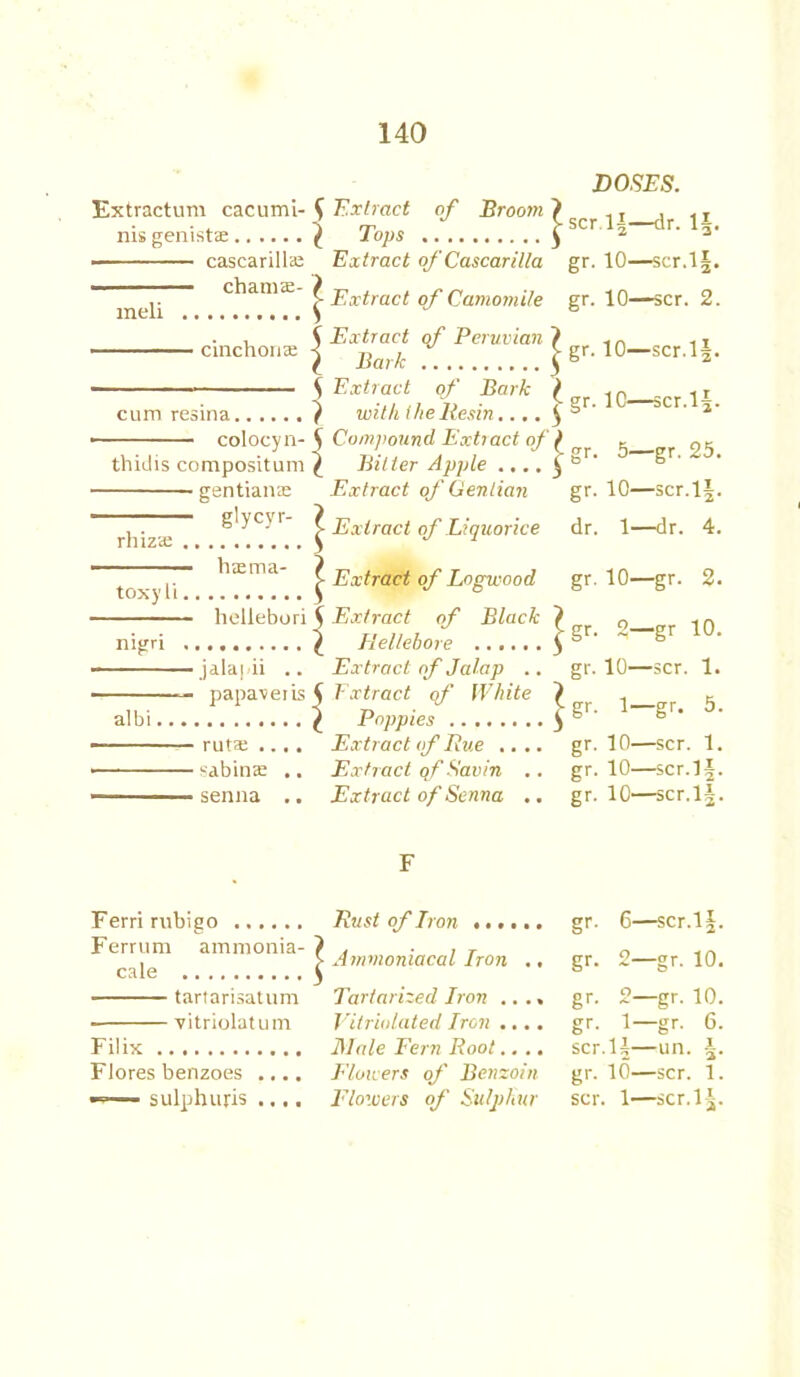 140
DOSES.
Extractum cacumi- { Extract of Broom } scr.1½—dr. 1½.
nis genistæ ...... { Tops .......... }
——— cascarillæ Extract of Cascarilla gr. 10—scr.1½.
——— chamæ- } Extract of Camomile gr. 10—scr. 2.
meli .......... }
——— cinchonæ { Extract of Peruvian } gr. 10—scr.1½.
{ Bark .......... }
——— { Extract of Bark } gr. 10—scr.1½.
cum resina...... { with the Resin.... }
——— colocyn- { Compound Extract of } gr. 5—gr. 25.
thidis compositum { Bitter Apple .... }
——— gentianæ Extract of Gentian gr. 10—scr.1½.
——— glycyr- } Extract of Liquorice dr. 1—dr. 4.
rhizæ .......... }
——— hæma- } Extract of Logwood gr. 10—gr. 2.
toxyli.......... }
——— hellebori { Extract of Black } gr. 2—gr 10.
nigri .......... { Hellebore ...... }
——— jalapii .. Extract of Jalap .. gr. 10—scr. 1.
——— papaveris { Extract of White } gr. 1—gr. 5.
albi............ { Poppies ........ }
——— rutæ .... Extract of Rue .... gr. 10—scr. 1.
——— sabinæ .. Extract of Savin .. gr. 10—scr.1½.
——— senna .. Extract of Senna .. gr. 10—scr.1½.
F
Ferri rubigo ...... Rust of Iron ...... gr. 6—scr.1½.
Ferrum ammonia- } Ammoniacal Iron .. gr. 2—gr. 10.
cale .......... }
——— tartarisatum Tartarized Iron .... gr. 2—gr. 10.
——— vitriolatum Vitriolated Iron .... gr. 1—gr. 6.
Filix ............ Male Fern Root.... scr.1½—un. ½.
Flores benzoes .... Flowers of Benzoin gr. 10—scr. 1.
—— sulphuris .... Flowers of Sulphur scr. 1—scr.1½.